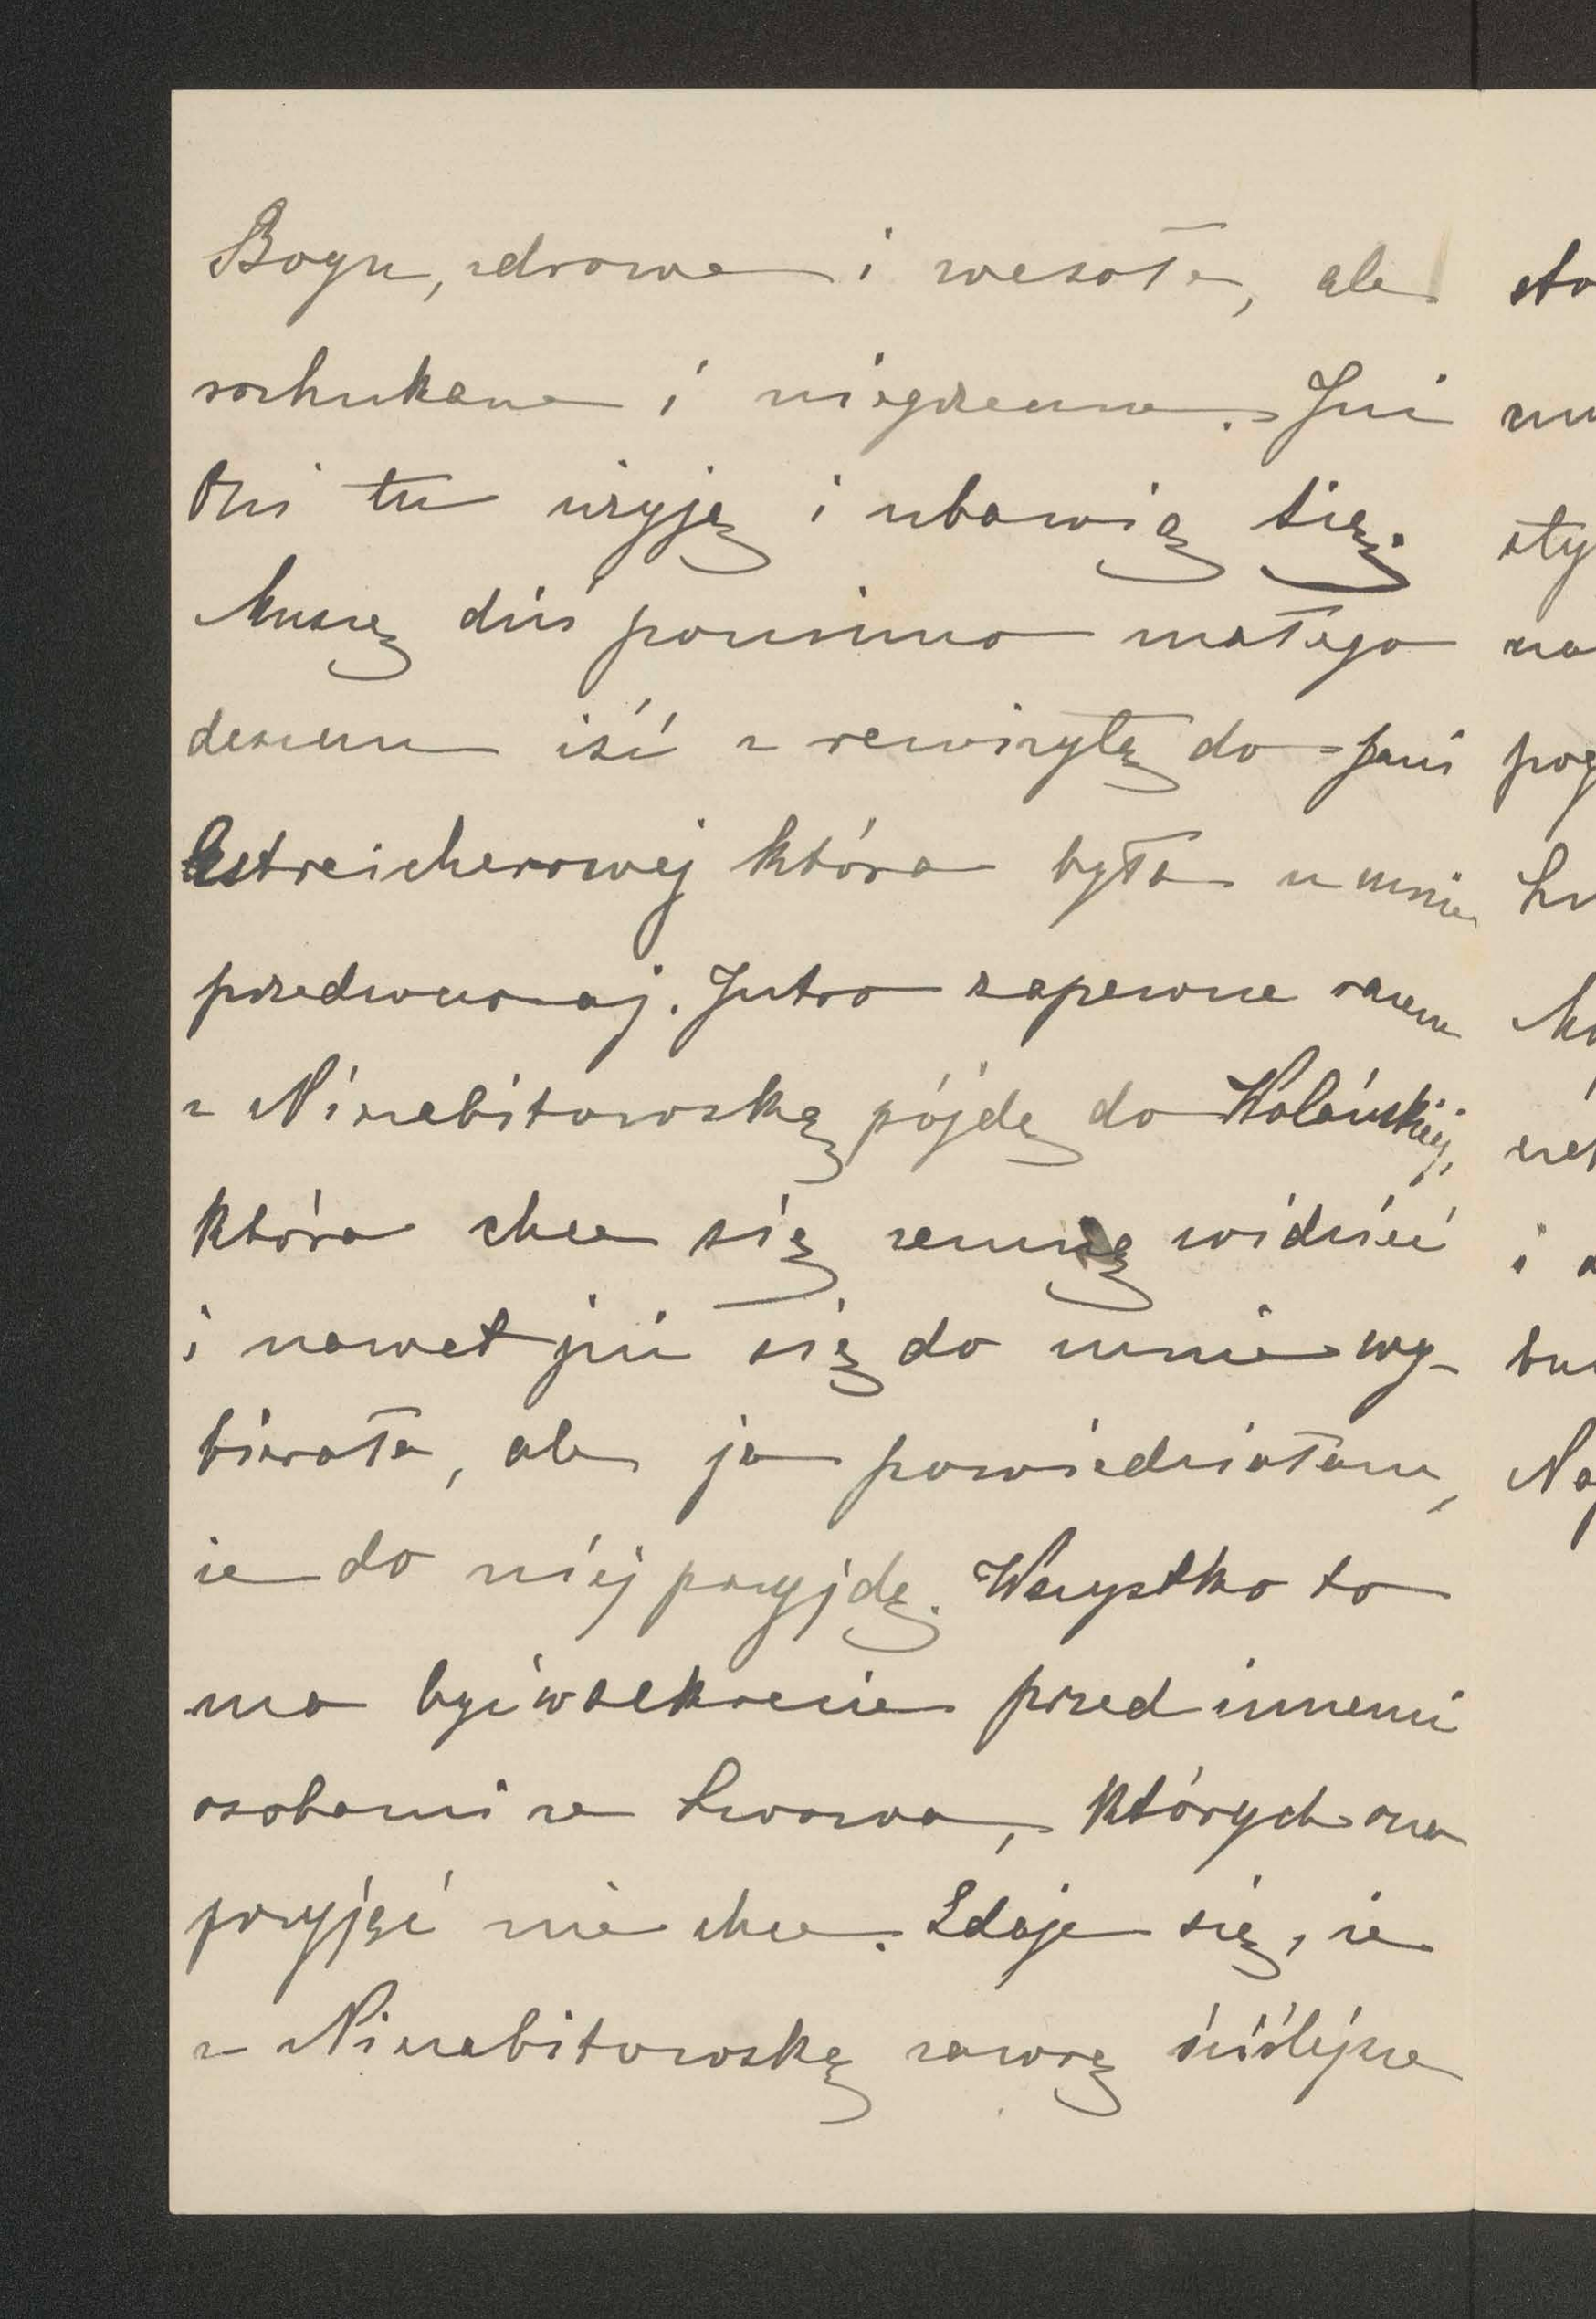 Bogu, zdrowe i wesołe, ale
rozhukane i niegrzeczne. Już
Oni tu użyją i ubawią się.
Muszę dziś pomimo małego
deszczu iść z rewizytą do pani
Estreicherowej która była u mnie
przedwczoraj. Jutro zapewne razem
z Niezabitowską pójdę do Wolańskiej,
która chce się zemną widzieć
i nawet już się do mnie wy-
bierała, ale ja powiedziałam,
że do niéj przyjdę. Wszystko to
ma być w sekrecie przed innemi
osobami ze Lwowa, których ona
przyjąć nie chce. Zdaje się, że
z Niezabitowską zawrę ściślejsze